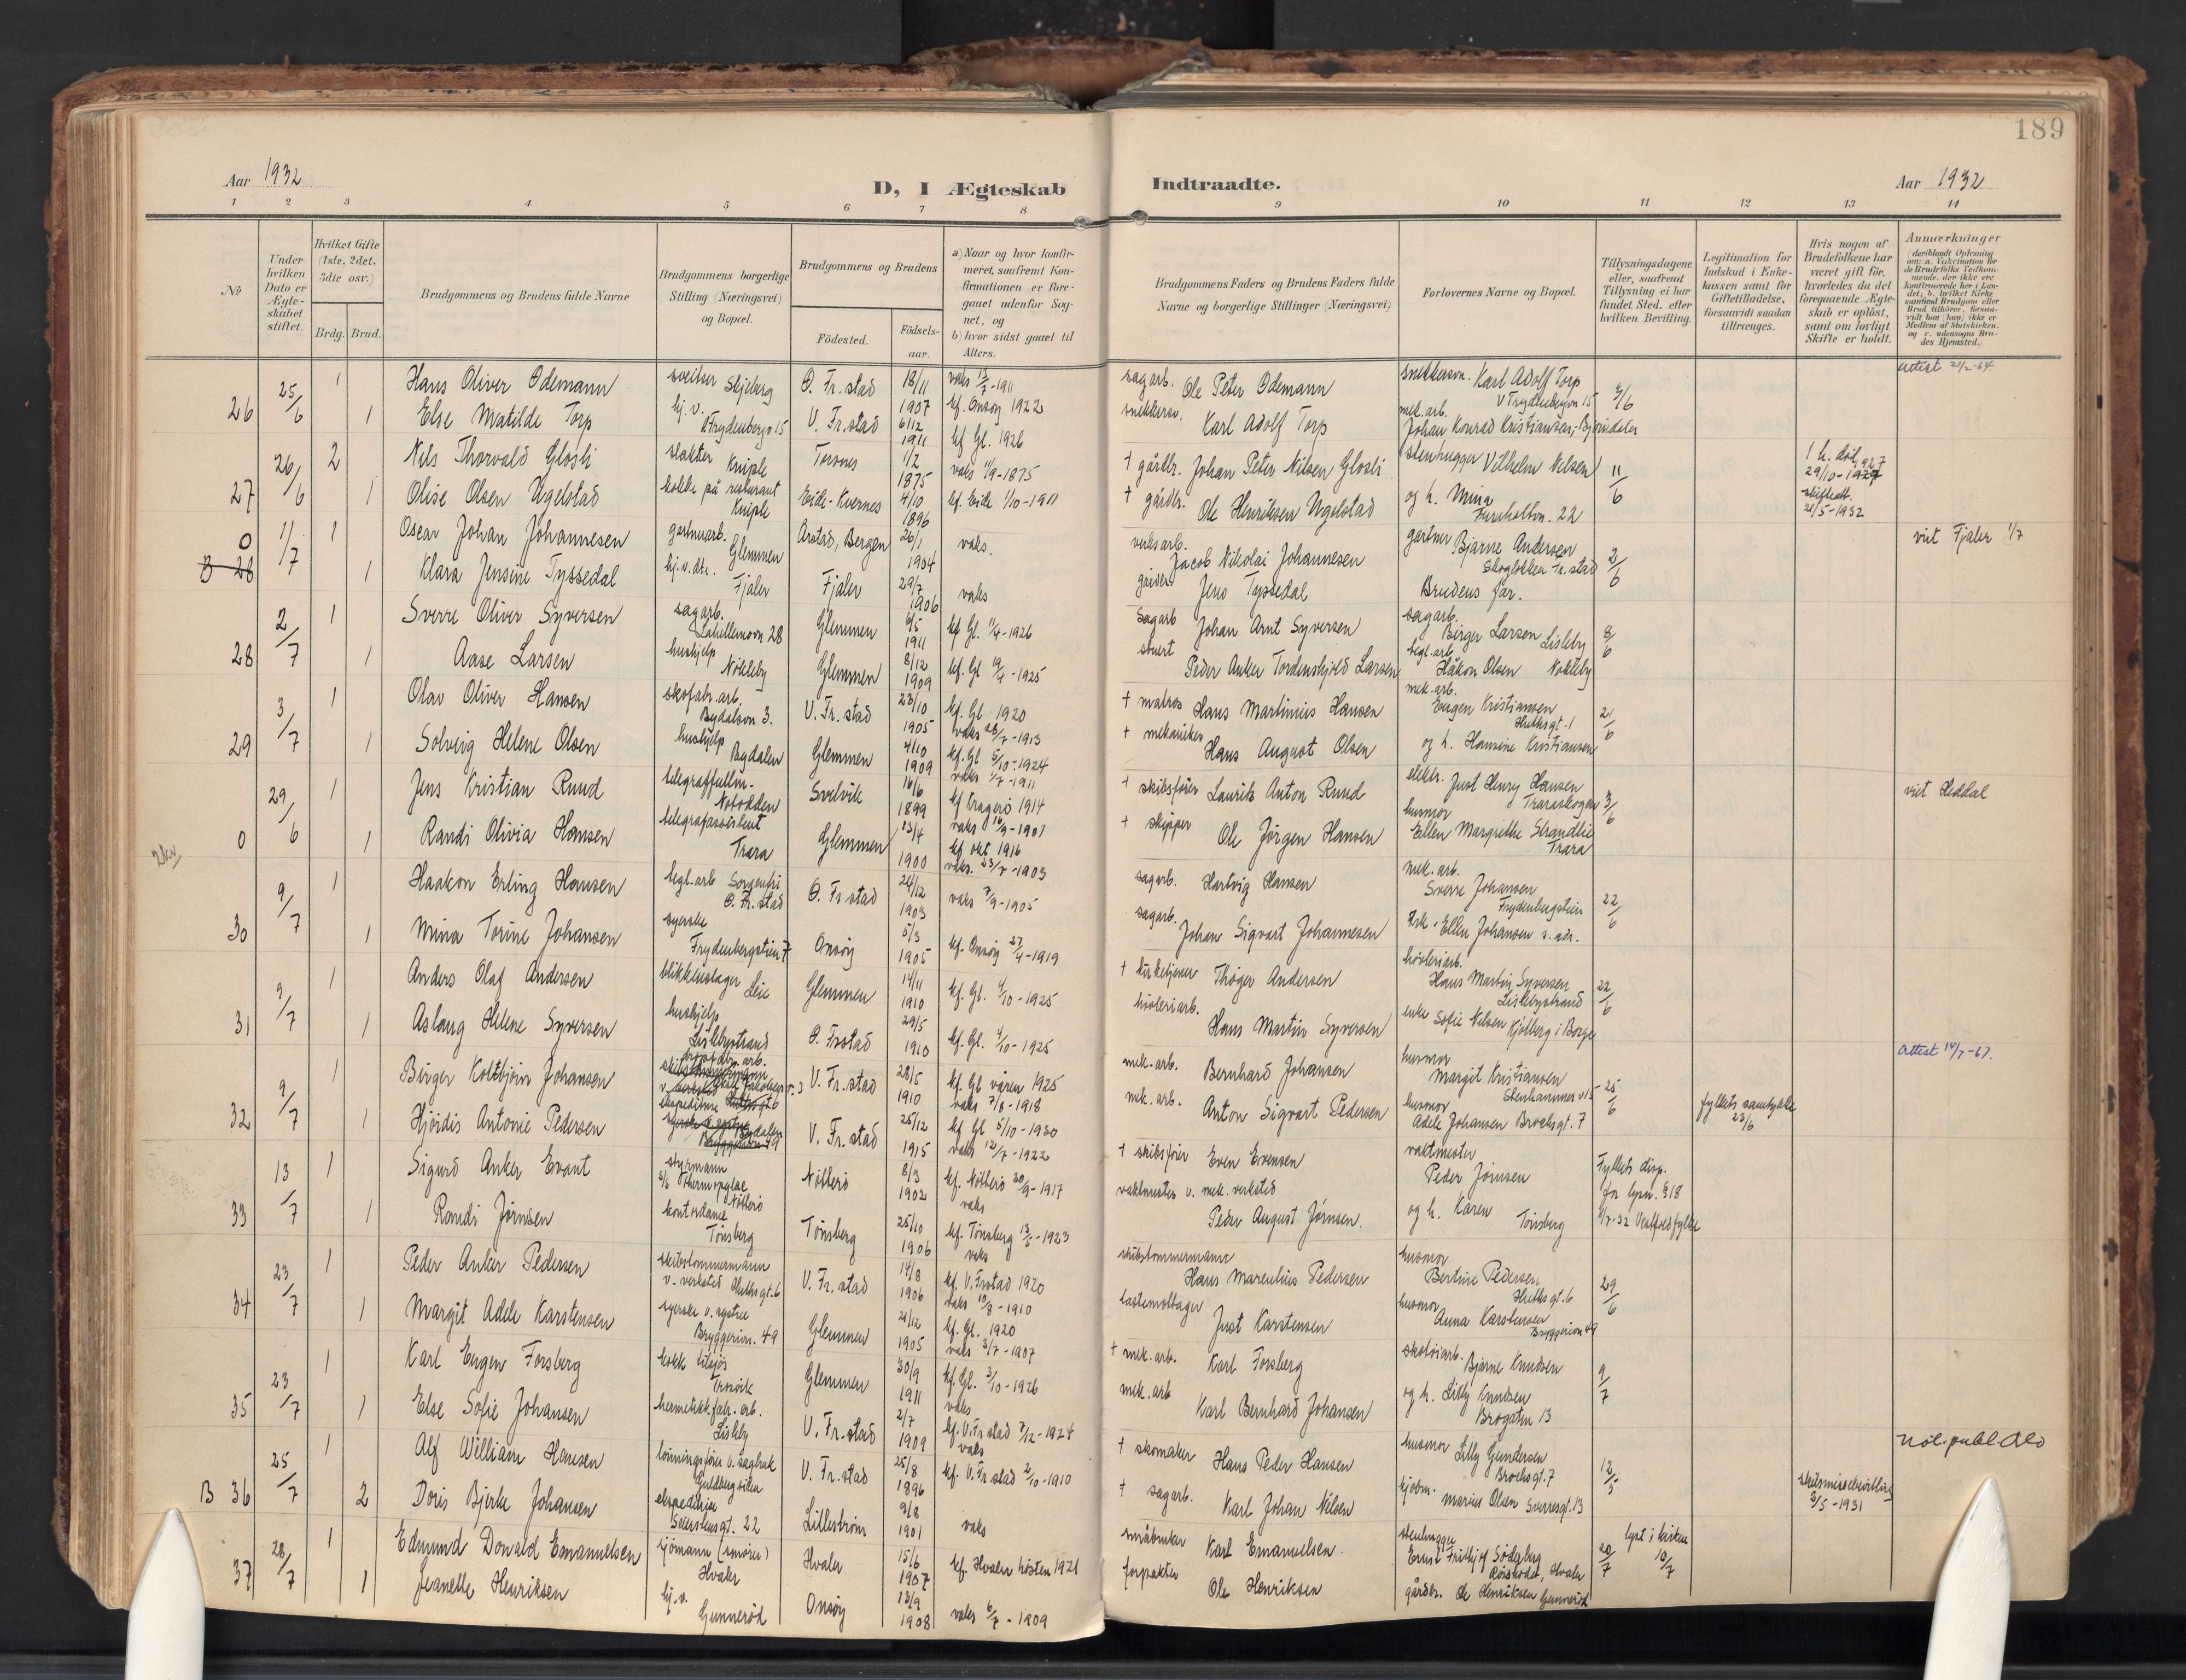 189
Aar 1932
D, I Ægteskab Indtraadte.
Aar 1932
1 2 3 4 5 6 7 8 9 10 11 12 13 14
No
Under hvilken Dato er Ægteskabet stiftet.
Hvilket Gifte (1ste, 2det, 3die osv.)
Brdg. Brud.
Brudgommens og Brudens fulde Navne
Brudgommens borgerlige Stilling (Næringsvei) og Bopæl.
Brudgommens og Brudens
Födested.
Födsels-aar.
a) Naar og hvor konfirmeret, saafremt Konfirmationen er foregaaet udenfor Sognet, og
b) hvor sidst gaaet til Alters.
Brudgommens Faders og Brudens Faders fulde Navne og borgerlige Stillinger (Næringsvei)
Forlovernes Navne og Bopæl.
Tillysningsdagene eller, saafremt Tillysning ei har fundet Sted, efter hvilken Bevilling.
Legitimation for Indskud i Enkekassen samt for Giftetilladelse, forsaavidt saadan tiltrænges.
Hvis nogen af Brudefolkene har været gift för, hvorledes da det foregaaende Ægteskab er oplöst, samt om lovligt Skifte er holdt.
Anmærkninger
(deriblandt Oplysning om: a. Vakcination for de Brudefolks Vedkommende, der ikke ere konfirmerede her i Landet; b. hvilket Kirkesamfund Brudgom eller Brud tilhörer, forsaavidt han (hun) ikke er Medlem af Statskirken, og c. udensogns Brudes Hjemsted.)
26 25/6 1 Hans Oliver Odemann sveitser Skjeberg Ø. Fr.stad 18/11 1907 vaks 13/7-1911 kf. Onsøy 1922 sagarb. Ole Peter Odemann Karl Adolf Torp V Frydenbergvn 15 attest 21/2-64
1 Else Matilde Torp hj.v. Frydenbergv 15 V. Fr.stad 6/12 1911 kf Gl. 1926 snekkersv. Karl Adolf Torp mek.arb. Johan Konrad Kristiansen, Bjørndalen
27 26/6 2 Nils Thorvald Glosli slakter Kniple Torsnes 1/2 1875 vaks 11/9-1875 + gårdbr. Johan Peter Nilsen Glosli stenhugger Vilhelm Nilsen 11/6 1 h. død 29/10-1927 skifteatt. 21/5-1932
1 Olise Olsen Ugelstad kokke på restaurant Kniple Eide-Kvernes 4/10 1896 kf. Eide 1/10-1911 + gårdbr. Ole Henriksen Ugelstad og h. Mina Furuholtvn. 22
0 B 28 11/7 1 Oscar Johan Johannesen gartnerarb. Glemmen Årstad, Bergen 26/1 1904 vaks. verksarb. Jacob Nikolai Johannesen gartner Bjarne Andersen Skogløkken Fr.stad 2/6 viet Fjaler 1/7
1 Klara Jensine Tyssedal hj.v.dtr. Fjaler Fjaler 29/7 1906 vaks gårdbr. Jens Tyssedal Brudens far.
28 2/7 1 Sverre Oliver Syversen sagarb. Labellemovn 28 Glemmen 6/5 1911 kf Gl. 11/4-1926 sagarb Johan Arnt Syversen sagarb. Birger Larsen Lisleby 8/6
1 Aase Larsen hushjelp Nøkleby Glemmen 8/12 1909 kf. Gl 19/4-1925 stuert Peder Anker Tordenskjold Larsen tegl.arb. Håkon Olsen Nøkleby
29 3/7 1 Olav Oliver Hansen skofabr.arb. Bydalsvn 3. V. Fr.stad 23/10 1905 kf. Gl. 1920 vaks 28/7-1913 + matros Hans Martinius Hansen mek.arb. Eugen Kristiansen Huthsgt. 1 2/6
1 Solveig Helene Olsen hushjelp Bydalen Glemmen 4/10 1909 kf. Gl 5/10-1924 vaks 1/7-1911 + mekaniker Hans August Olsen og h. Hansine Kristiansen
0 29/6 1 Jens Kristian Ruud Notodden Svelvik 16/6 1899 kf Kragerø 1914 vaks 14/9-1901 + skibsfører Laurits Anton Ruud elektr. Just Henry Hansen Traraskogen 3/6 viet Heddal
1 Randi Olivia Hansen telegrafassistent Trara Glemmen 13/4 1900 kf okt 1916 vaks. 23/7-1903 + skipper Ole Jørgen Hansen husmor Ellen Margrethe Strandlie Trara
30 9/7 1 Haakon Erling Hansen tegl.arb Sorgenfri Ø. Fr.stad Ø. Fr stad 24/12 1903 vaks 7/9-1905 sagarb. Hartvig Hansen mek.arb. Sverre Johansen Frydenbergstien 22/6
1 Mina Torine Johansen syerske Frydenbergstien 7 Onsøy 5/3 1905 kf. Onsøy 27/4-1919 sagarb. Johan Sigvart Johannesen Frk. Ellen Johansen s. adr.
31 9/7 1 Anders Olaf Andersen blikkenslager Leie Glemmen 14/11 1910 kf. Gl. 4/10-1925 + kirketjener Thøger Andersen høvleriarb. Hans Martin Syversen Lislebystrand 22/6
1 Aslaug Helene Syversen hushjelp Lislebystrand Ø. Frstad 29/5 1910 kf. Gl. 4/10-1925 høvleriarb. Hans Martin Syversen enke Sofie Nilsen Kjølberg i Borge
32 9/7 1 Birger Kolbjørn Johansen V. Fr.stad 28/5 1910 kf. Gl våren 1925 vaks 7/8-1918 mek.arb. Bernhard Johansen husmor Margit Kristiansen Stenhammerv 15 25/6 attest 14/7-67.
1 Hjördis Antonie Pedersen ekspeditrise V. Fr.stad 25/12 1915 kf Gl 5/10-1930 vaks 12/7-1922 mek.arb. Anton Sigvart Pedersen husmor Adele Johansen Brochsgt. 7 fylkets samtykke 23/6
33 13/7 1 Sigurd Anker Evant styrmann S/S Thermopylæ Nøtterø Nøtterø 8/3 1902 kf. Nøtterø 30/9-1917 vaks + skibsfører Even Evensen vaktmester Peder Jørnsen Fylkets disp. for lysn. §18
1 Randi Jørnsen kontordame Tønsberg Tønsberg 25/10 1906 kf. Tønsberg 13/5-1923 vaks vaktmester v. mek. verksted Peder August Jørnsen. og h. Karen Tønsberg 1/7-32 Vestfold fylke
34 23/7 1 Peder Anker Pedersen skibstømmermann v. verksted Huthsgt. 6 V. Fr.stad 14/8 1906 kf. V. Frstad 1920 vaks 10/8-1910 skibstømmermann Hans Marenlius Pedersen husmor Bertine Pedersen Huthsgt. 6 29/6
1 Margit Adele Karstensen syerske v. systue Bryggerivn. 49 Glemmen 21/12 1905 kf. Gl. 1920 vaks 3/7-1907 lastemottager Just Karstensen husmor Anna Karstensen Bryggerivn 49
35 23/7 1 Karl Eugen Forsberg kokk tilsjøs Trosvik Glemmen 30/9 1911 kf. Gl. 3/10-1926 vaks + mek.arb. Karl Forsberg skotøiarb. Bjarne Knudsen 9/7
1 Else Sofie Johansen hermetikkfabr.arb. Lisleby V. Fr.stad 2/7 1909 kf. V. Fr stad 7/12-1924 vaks mek.arb Karl Bernhard Johansen og h. Lilly Knudsen Brogaten 13
B 36 25/7 1 Alf William Hansen lønningsfører v. sagbruk Guldbergsiden V. Fr.stad 25/8 1896 kf. V. Fr stad 2/10-1910 + skomaker Hans Peder Hansen husmor Lilly Gundersen Brochsgt. 7 12/5 not. publ. Oslo
2 Doris Bjerke Johansen ekspeditrise Seierstensgt. 22 Lillestrøm 9/8 1901 vaks + sagarb. Karl Johan Nilsen kjøbm. Marius Olsen Sverresgt. 13 skilsmissebevilling 3/5-1931
37 28/7 1 Edmund Donald Emanuelsen sjømann (smører) Hvaler Hvaler 15/6 1907 kf. Hvaler høsten 1921 småbruker Karl Emanuelsen. stenhugger Ernst Fritjof Søderberg Rødshodet, Hvaler 20/7 lyst i kirken 10/7
1 Jeanette Henriksen hj.v. Gunnerød Onsøy 13/9 1908 vaks 6/7-1909 forpakter Ole Henriksen gårdbr. Ole Henriksen Gunnerød